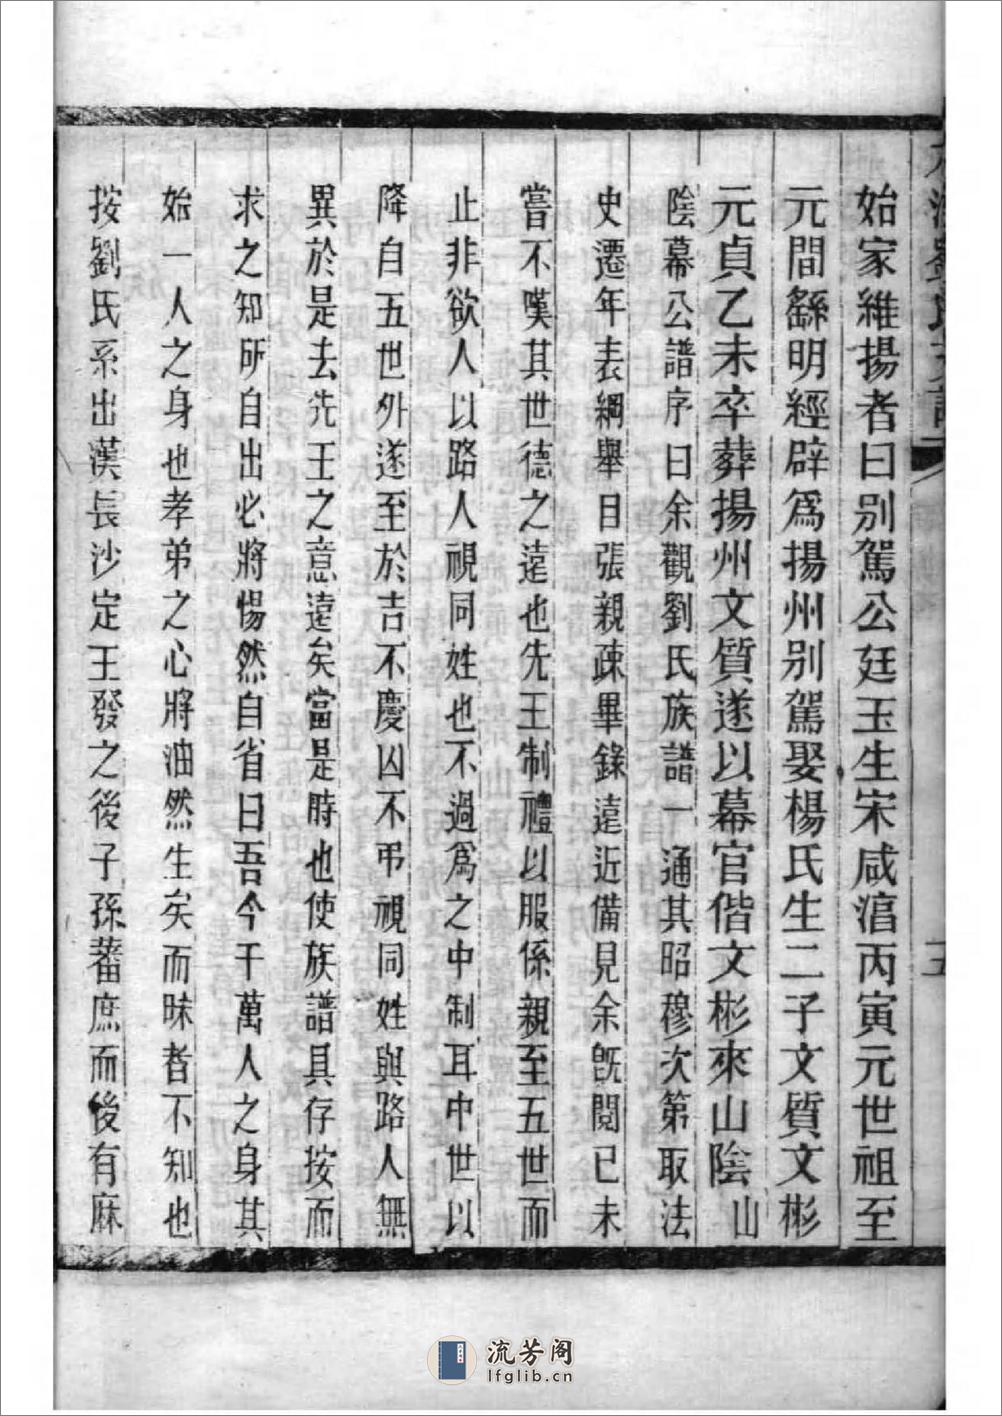 始家維揚者曰別駕公廷玉生宋咸淳丙寅元世祖至
元間繇明經辟爲揚州別駕娶楊氏生二子文質文彬
元貞乙未卒葬揚州文質遂以幕官偕文彬來山陰山
陰幕公譜序曰余觀劉氏族譜一通其昭穆次第取法
史遷年表綱舉目張親疎畢錄遠近備見余旣閱已未
嘗不嘆其世德之遠也先王制禮以服係親至五世而
止非欲人以路人視同姓也不過爲之中制耳中世以
降自五世外遂至於吉不慶囚不弔視同姓與路人無
異於是去先王之意遠矣當是時也使族譜具存按而
求之知所自出必將惕然自省曰吾今千萬人之身其
始一人之身也孝弟之心將油然生矣而昧者不知也
按劉氏系出漢長沙定王發之後子孫蕃庶而後有麻
流芳阁
lfglib.cn